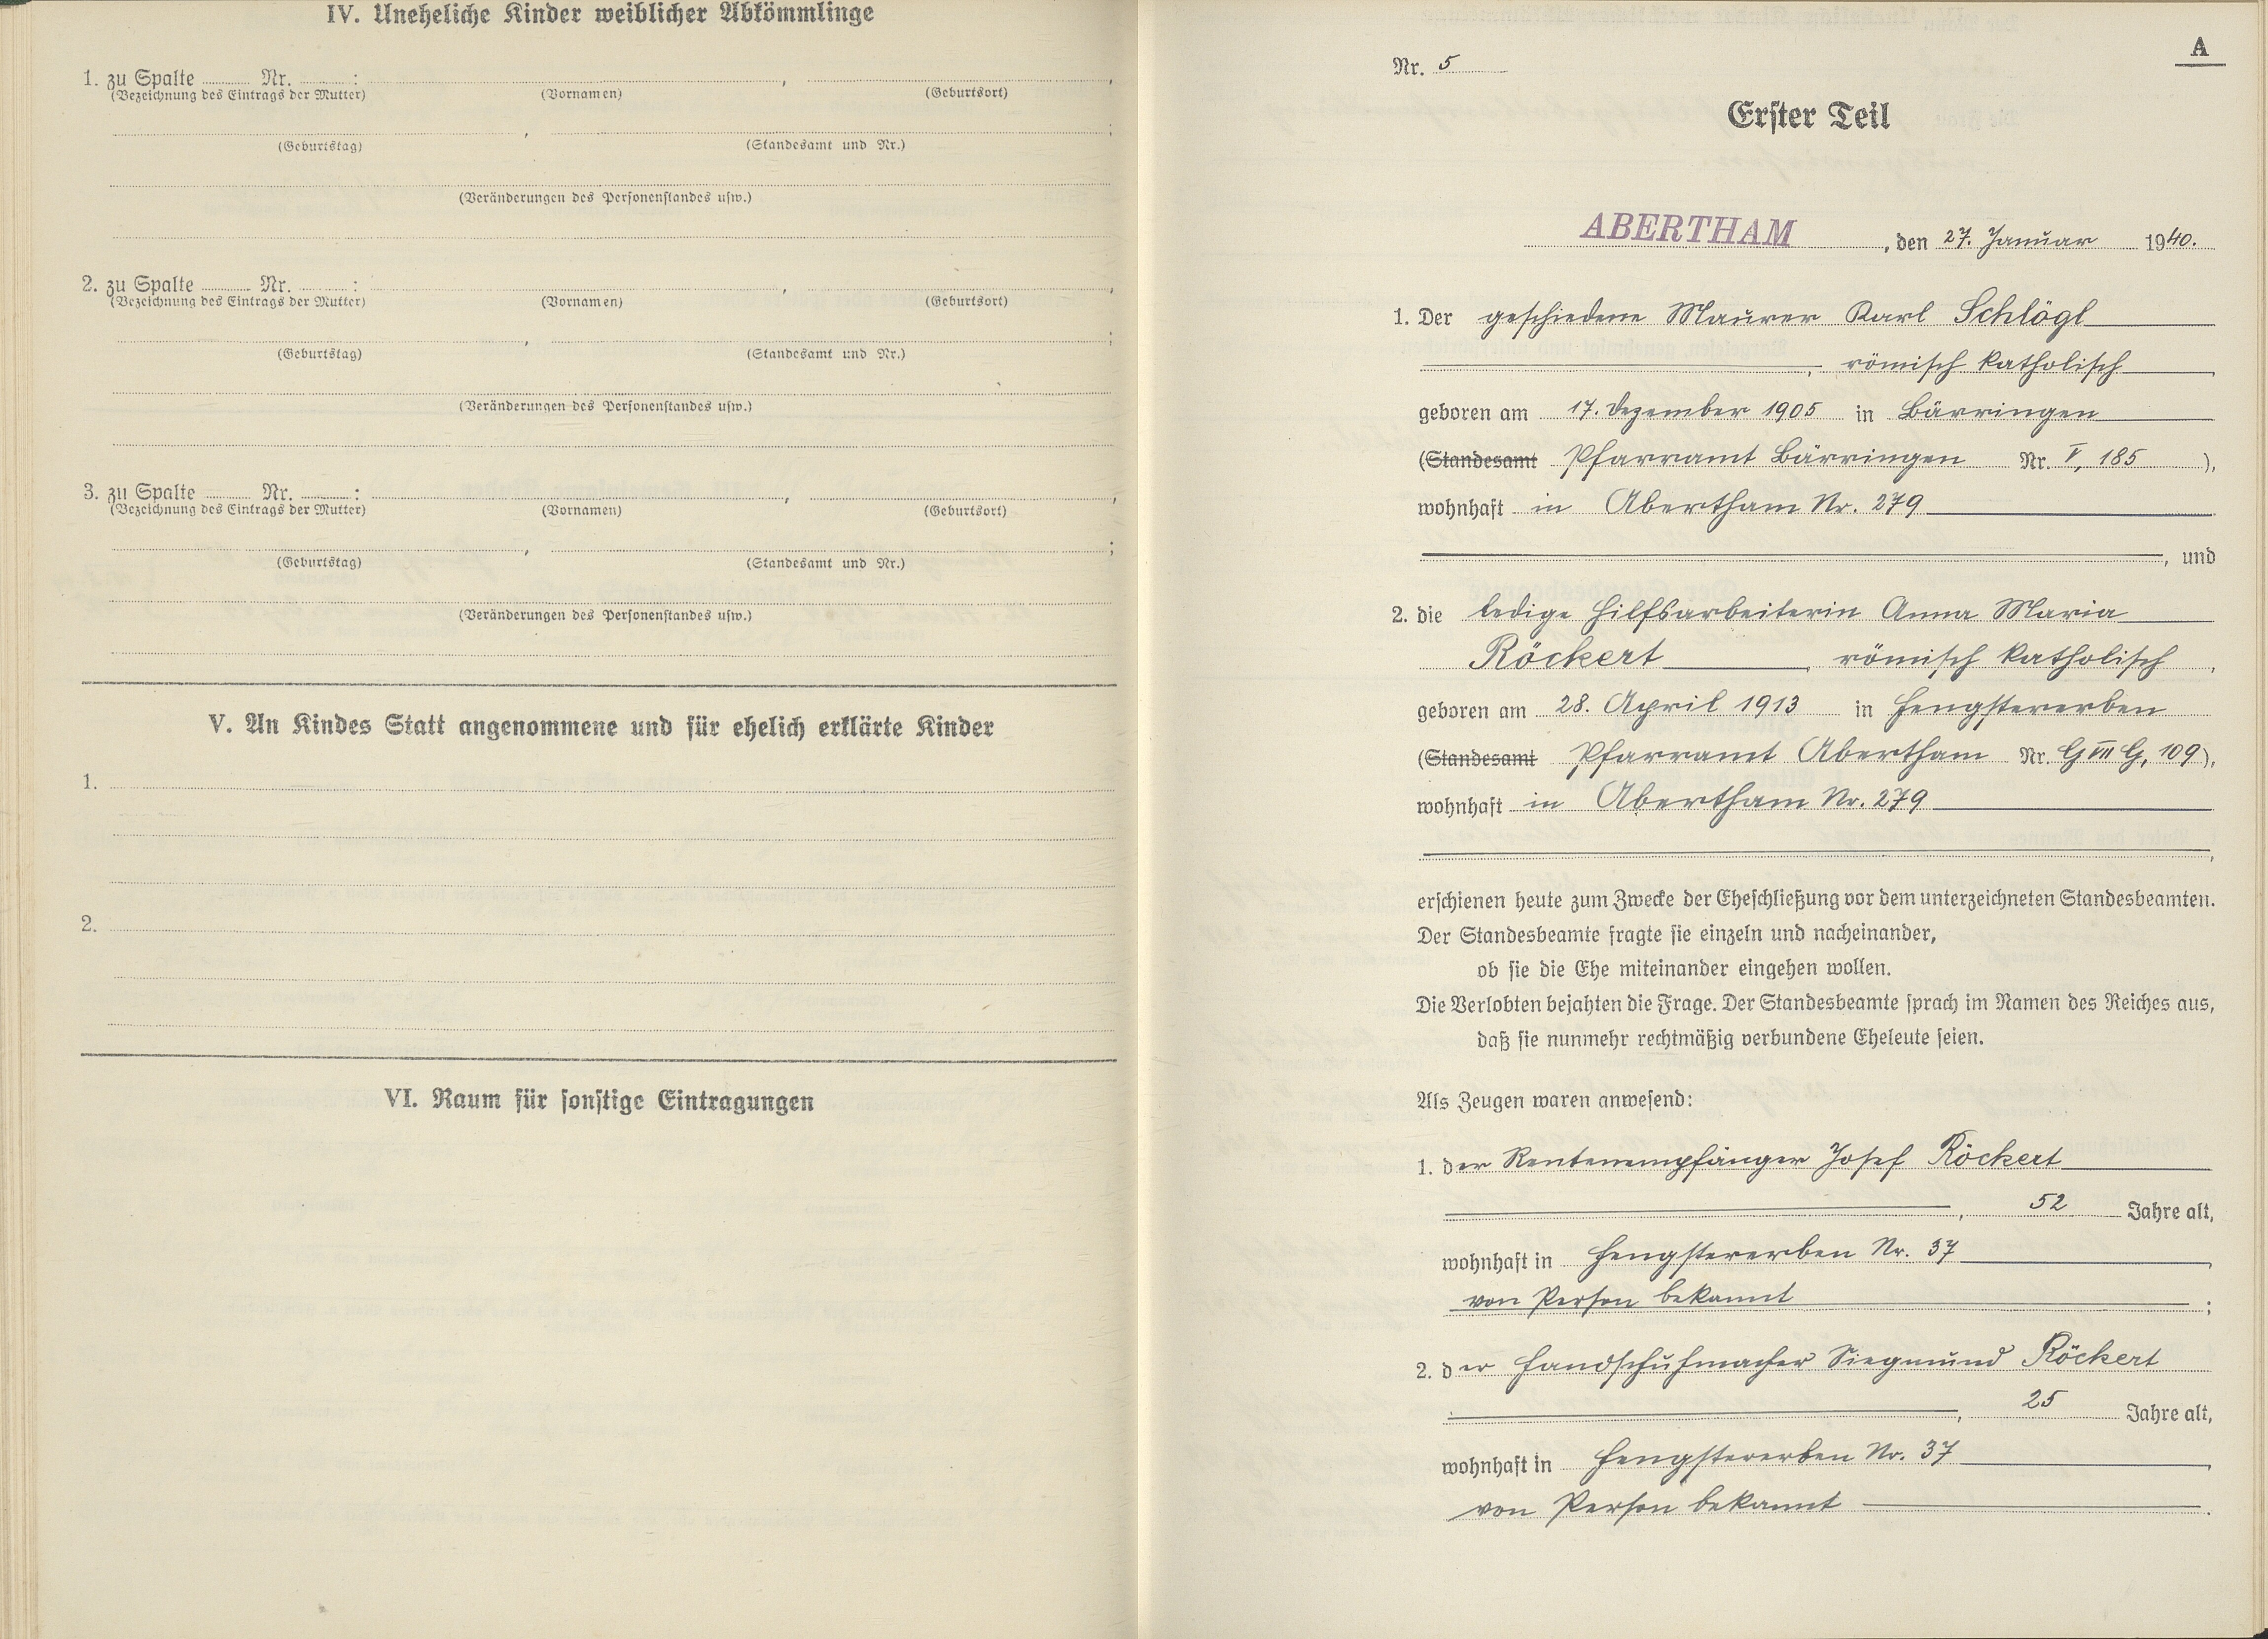 IV. Uneheliche Kinder weiblicher Abkömmlinge
1. zu Spalte Nr. : , ,
(Bezeichnung des Eintrags der Mutter) (Vornamen) (Geburtsort)
, ;
(Geburtstag) (Standesamt und Nr.)
(Veränderungen des Personenstandes usw.)
2. zu Spalte Nr. : , ,
(Bezeichnung des Eintrags der Mutter) (Vornamen) (Geburtsort)
, ;
(Geburtstag) (Standesamt und Nr.)
(Veränderungen des Personenstandes usw.)
3. zu Spalte Nr. : , ,
(Bezeichnung des Eintrags der Mutter) (Vornamen) (Geburtsort)
, ;
(Geburtstag) (Standesamt und Nr.)
(Veränderungen des Personenstandes usw.)
V. An Kindes Statt angenommene und für ehelich erklärte Kinder
1.
2.
VI. Raum für sonstige Eintragungen
A
Nr. 5
Erster Teil
ABERTHAM, den 27. Januar 1940.
1. Der geschiedene Maurer Karl Schlögl
, römisch katholisch,
geboren am 17. Dezember 1905 in Bärringen
(Standesamt Pfarramt Bärringen Nr. V, 185),
wohnhaft in Abertham Nr. 279
, und
2. die ledige Hilfsarbeiterin Anna Maria
Röckert, römisch katholisch,
geboren am 28. April 1913 in Hengstererben
(Standesamt Pfarramt Abertham Nr. G VII G, 109),
wohnhaft in Abertham Nr. 279
,
erschienen heute zum Zwecke der Eheschließung vor dem unterzeichneten Standesbeamten.
Der Standesbeamte fragte sie einzeln und nacheinander,
ob sie die Ehe miteinander eingehen wollen.
Die Verlobten bejahten die Frage. Der Standesbeamte sprach im Namen des Reiches aus,
daß sie nunmehr rechtmäßig verbundene Eheleute seien.
Als Zeugen waren anwesend:
1. der Rentenempfänger Josef Röckert
, 52 Jahre alt,
wohnhaft in Hengstererben Nr. 37,
von Person bekannt;
2. der Handschuhmacher Siegmund Röckert
, 25 Jahre alt,
wohnhaft in Hengstererben Nr. 37,
von Person bekannt.